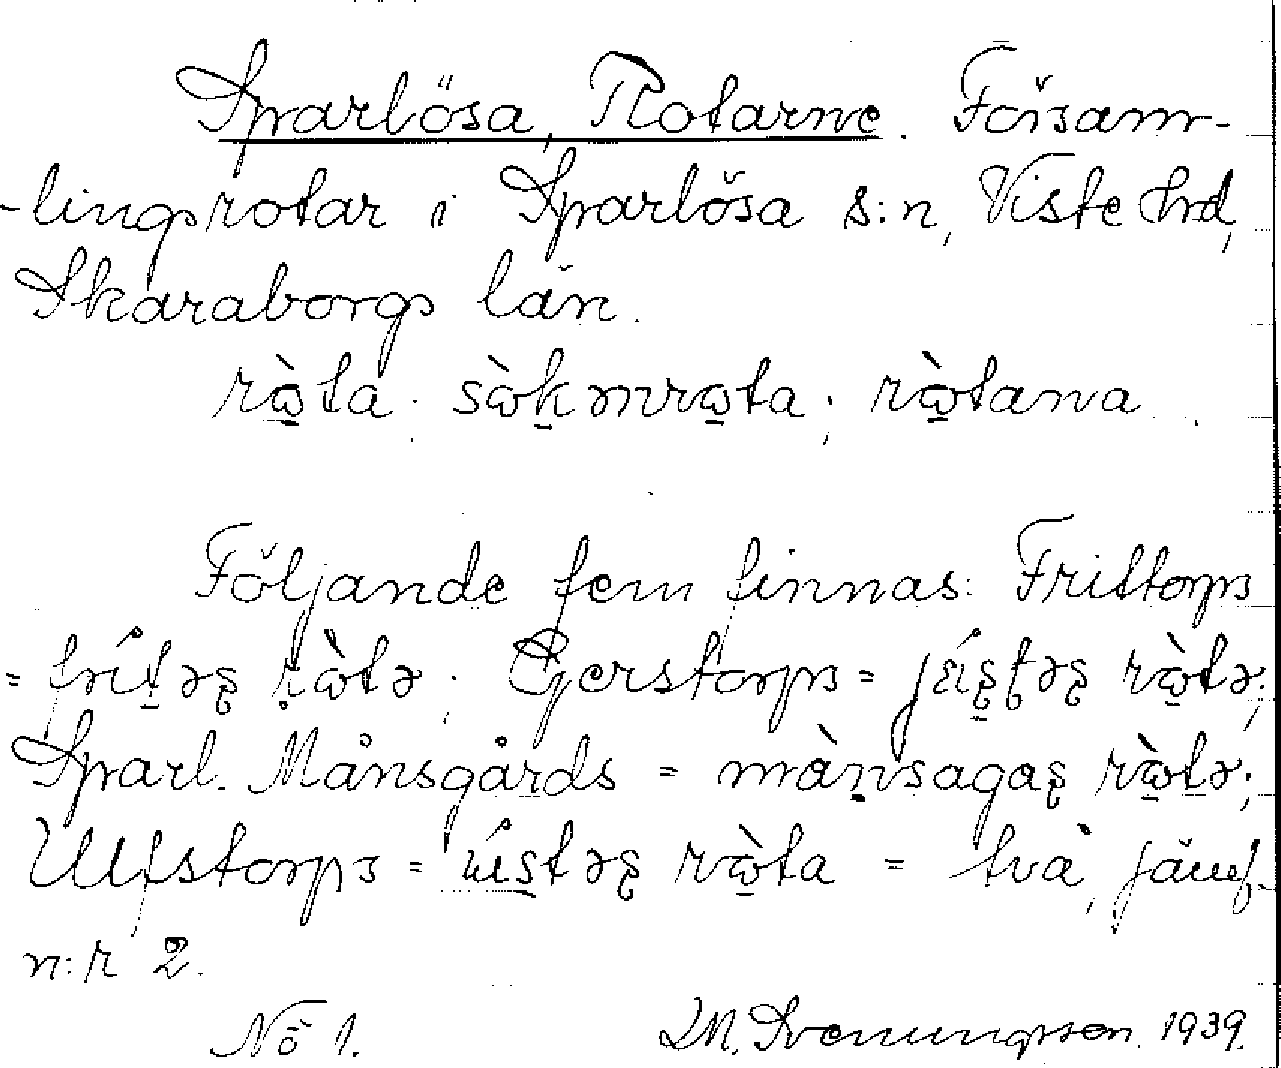 Sparlösa, Rotarne. Församm-
-lingsrotar i Sparlösa s:n, Viste hrd,
Skaraborgs län.
rꞷ̀ta. sꞷ̀kənrꞷta; rꞷ̀tana.
Följande fem finnas: Frittorps
= frítəʂ rꞷ̀tə; Gerstorps =
rꞷ̀tə;
Sparl. Månsgårds = mànsagaʂ rꞷ̀tə;
Ulfstorps = ústəʂ rꞷ̀ta = två, jämf.
n:r 2.
No 1. Svenungsson. 1939.